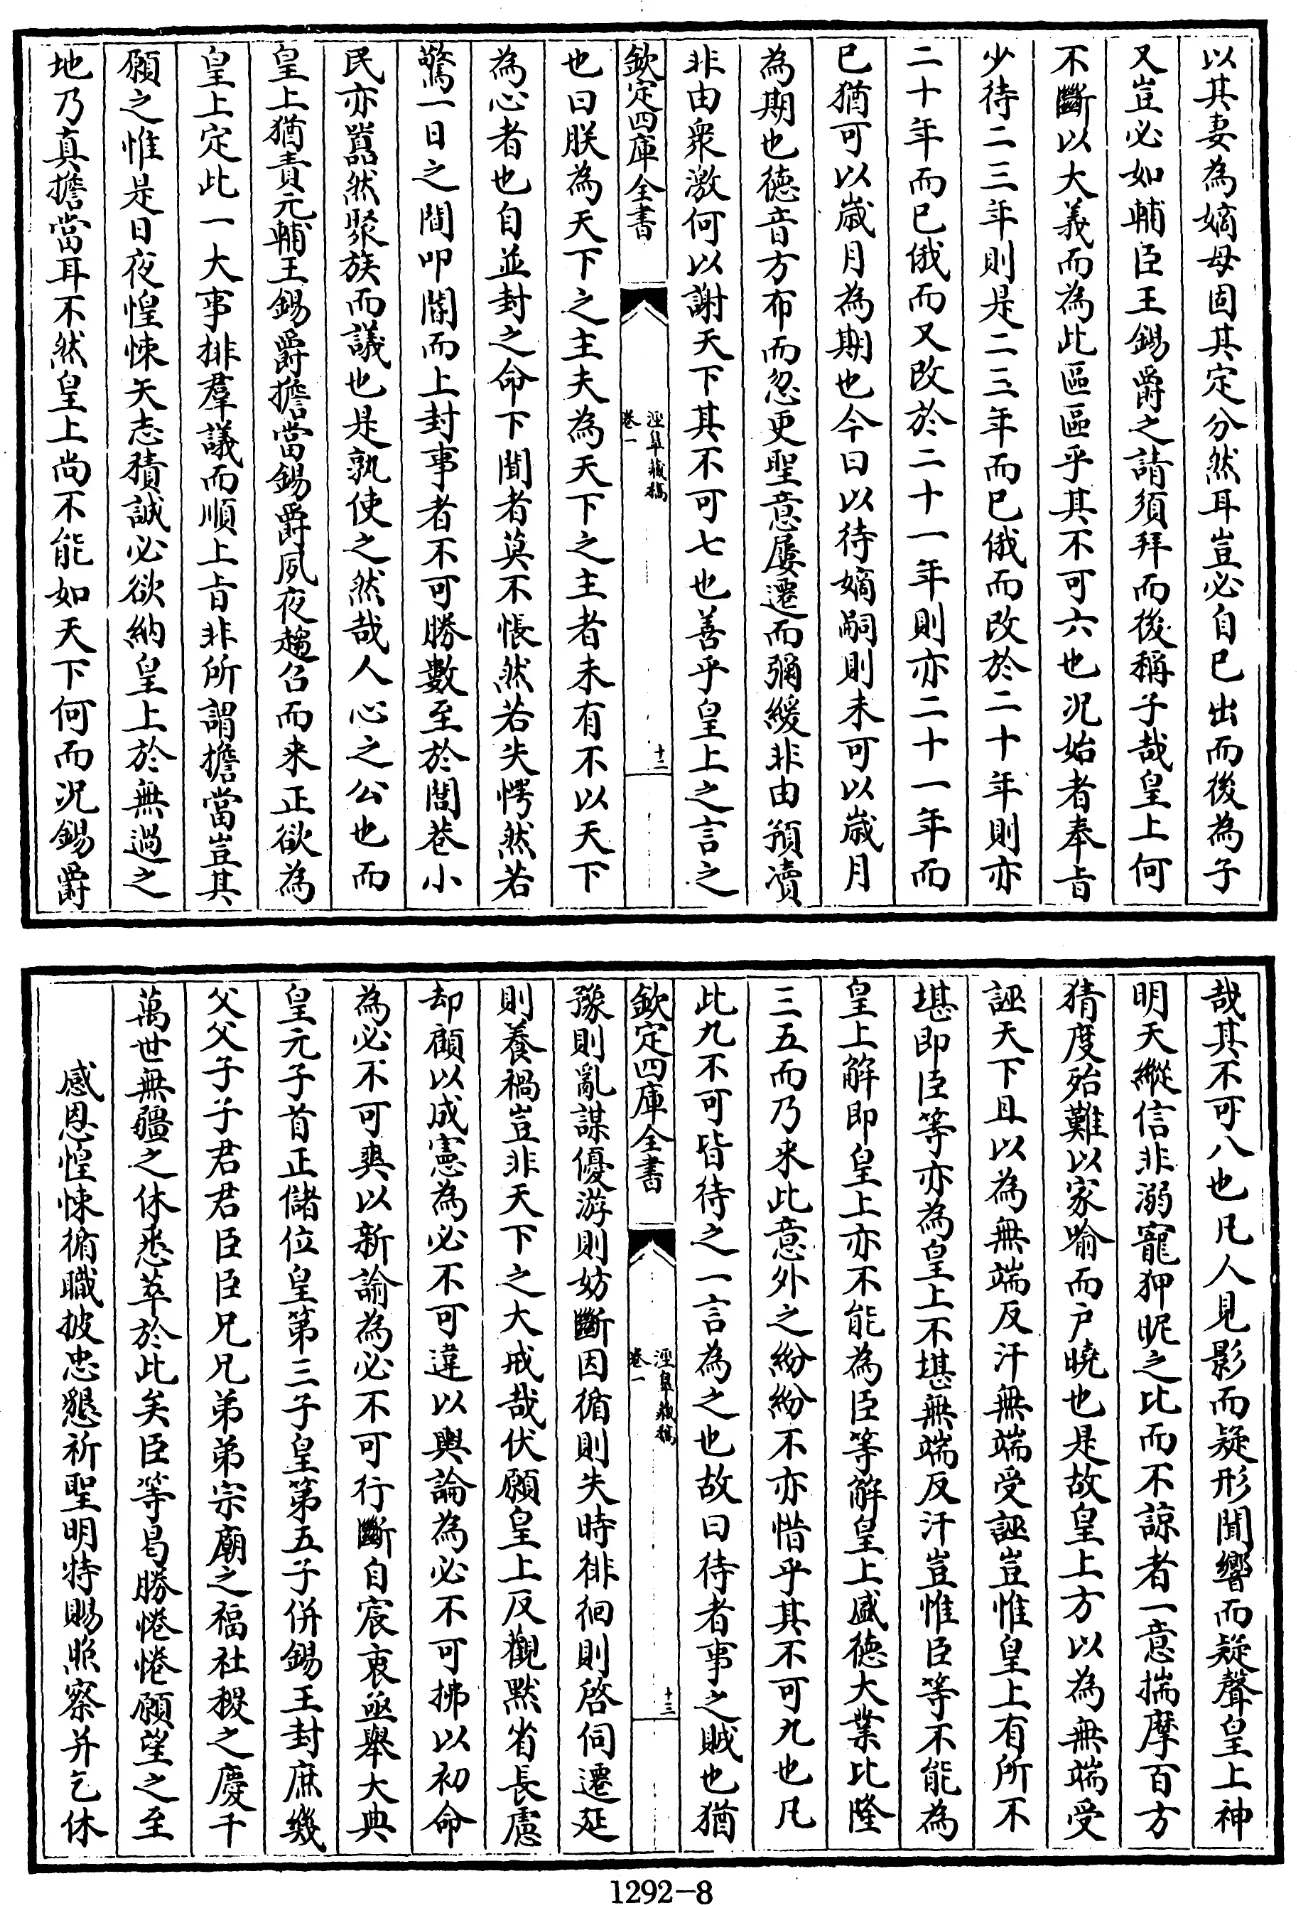 以其妻為嫡母固其定分然耳豈必自已出而後為子
又豈必如輔臣王錫爵之請須拜而後稱子哉皇上何
不斷以大義而為此區區乎其不可六也況始者奉㫖
少待二三年則是二三年而已俄而改於二十年則亦
二十年而已俄而又改於二十一年則亦二十一年而
已猶可以嵗月為期也今曰以待嫡嗣則未可以嵗月
為期也德音方布而忽更聖意屢遷而彌緩非由預凟
非由衆激何以謝天下其不可七也善乎皇上之言之
欽定四庫全書
涇臯藏稿
卷一
十二
也曰朕為天下之主夫為天下之主者未有不以天下
為心者也自並封之命下聞者莫不悵然若失愕然若
驚一日之間叩閽而上封事者不可勝數至於閭巷小
民亦嚚然聚族而議也是孰使之然哉人心之公也而
皇上猶責元輔王錫爵擔當錫爵夙夜趨召而来正欲為
皇上定此一大事排羣議而順上㫖非所謂擔當豈其
願之惟是日夜惶悚矢志積誠必欲納皇上於無過之
地乃真擔當耳不然皇上尚不能如天下何而況錫爵
哉其不可八也凡人見影而疑形聞響而疑聲皇上神
明天縱信非溺寵狎昵之比而不諒者一意揣摩百方
猜度殆難以家喻而户曉也是故皇上方以為無端受
誣天下且以為無端反汗無端受誣豈惟皇上有所不
堪即臣等亦為皇上不堪無端反汗豈惟臣等不能為
皇上解即皇上亦不能為臣等解皇上盛德大業比隆
三五而乃来此意外之紛紛不亦惜乎其不可九也凡
此九不可皆待之一言為之也故曰待者事之賊也猶
欽定四庫全書
涇臯藏稿
卷一
十三
豫則亂謀優游則妨斷因循則失時徘徊則啓伺遷延
則養禍豈非天下之大戒哉伏願皇上反觀默省長慮
却顧以成憲為必不可違以輿論為必不可拂以初命
為必不可爽以新諭為必不可行斷自宸衷亟舉大典
皇元子首正儲位皇第三子皇第五子併錫王封庶幾
父父子子君君臣臣兄兄弟弟宗廟之福社稷之慶千
萬世無疆之休悉萃於此矣臣等曷勝惓惓願望之至
感恩惶悚循職披忠懇祈聖明特賜照察并乞休
1292-8